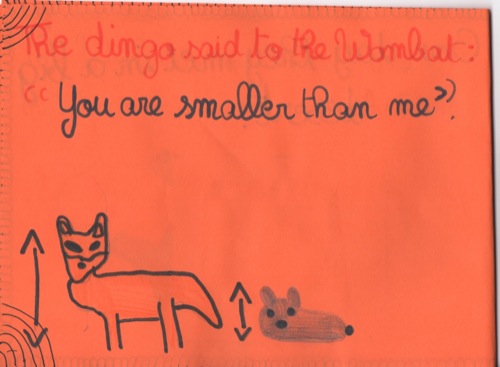 The dingo said to the Wombat:
“You are smaller than me”.